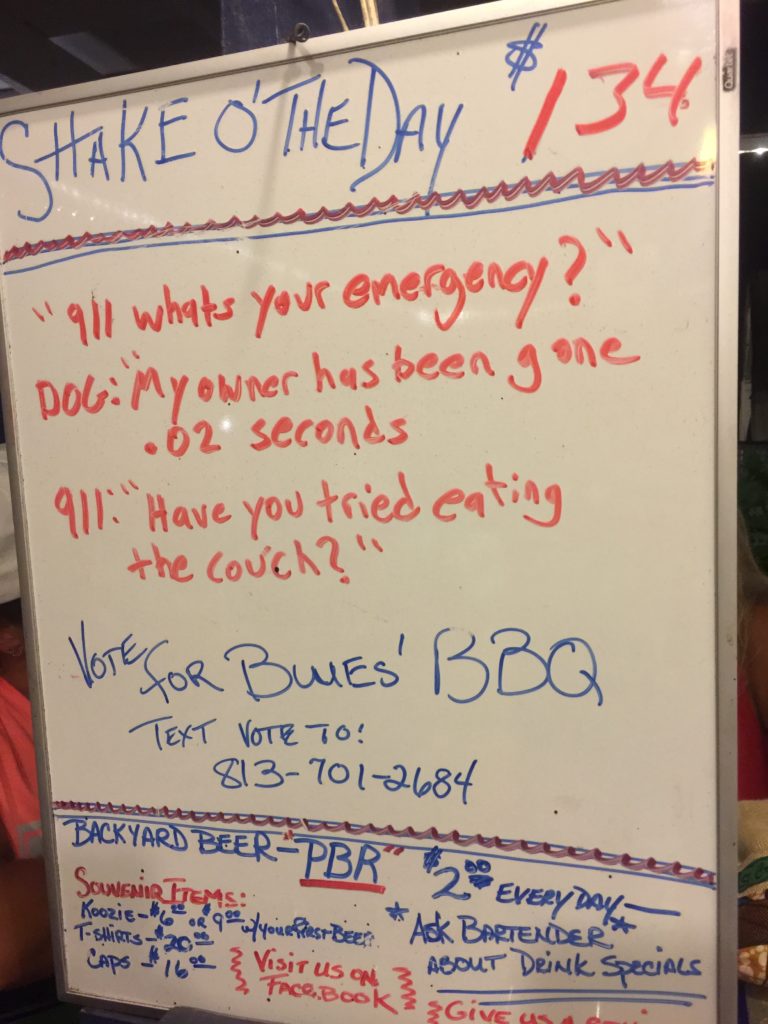 SHAKE O' THE DAY $134
"911 whats your emergency?"
DOG: "My owner has been gone
.02 seconds
911: "Have you tried eating
the couch?"
VOTE FOR BLUES' BBQ
TEXT VOTE TO:
813-701-2684
BACKYARD BEER-"PBR" $2.00 EVERYDAY—
SOUVENIR ITEMS:
KOOZIE-$6.00 OR $9.00 w/YOUR FIRST BEER
T-SHIRTS-$20.00
CAPS -$16.00
*ASK BARTENDER*
ABOUT DRINK SPECIALS
VISIT US ON
FACEBOOK
GIVE US A